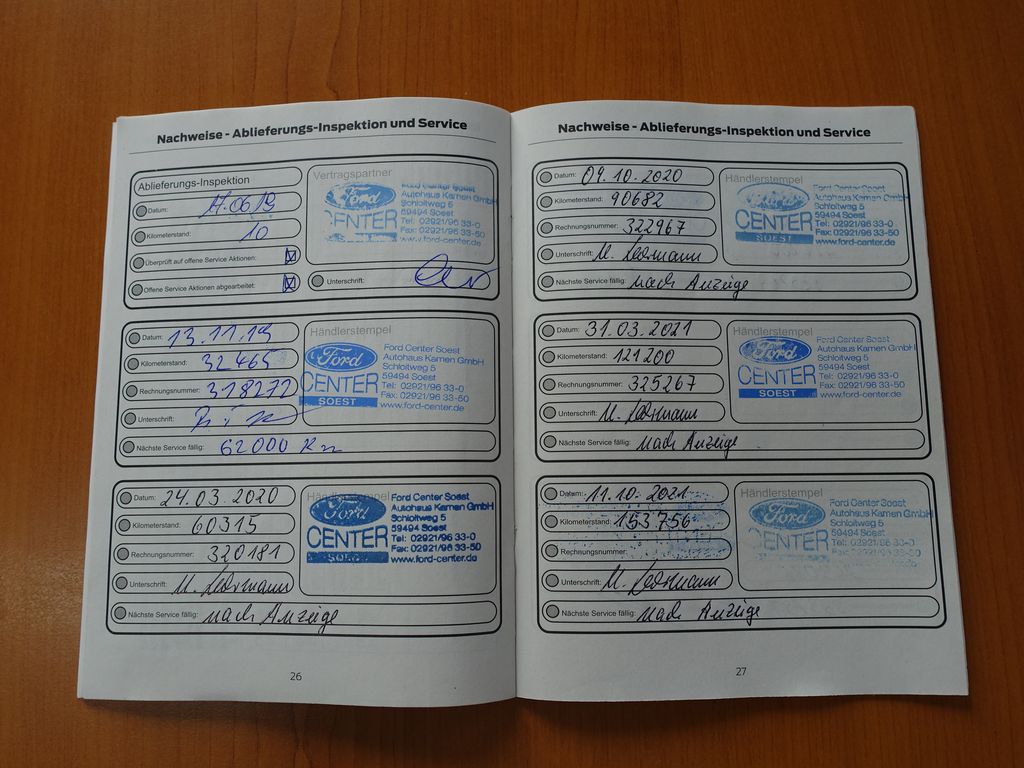 Nachweise - Ablieferungs-Inspektion und Service
Ablieferungs-Inspektion
Datum: 17.06.19
Kilometerstand: 10
Überprüft auf offene Service Aktionen:
Offene Service Aktionen abgearbeitet:
Vertragspartner
Ford Center Soest
Ford
Autohaus Kamen GmbH
CENTER
Schloitweg 5
59494 Soest
Tel: 02921/96 33-0
Fax: 02921/96 33-50
www.ford-center.de
Unterschrift:
Datum: 13.11.19
Kilometerstand: 32465
Rechnungsnummer: 318272
Unterschrift:
Nächste Service fällig: 62000 Km
Händlerstempel
Ford
CENTER
SOEST
Ford Center Soest
Autohaus Kamen GmbH
Schloitweg 5
59494 Soest
Tel: 02921/96 33-0
Fax: 02921/96 33-50
www.ford-center.de
Datum: 24.03.2020
Kilometerstand: 60315
Rechnungsnummer: 320181
Unterschrift:
Nächste Service fällig: nach Anzeige
Händlerstempel
Ford
CENTER
SOEST
Ford Center Soest
Autohaus Kamen GmbH
Schloitweg 5
59494 Soest
Tel: 02921/96 33-0
Fax: 02921/96 33-50
www.ford-center.de
26
Nachweise - Ablieferungs-Inspektion und Service
Datum: 09.10.2020
Kilometerstand: 90682
Rechnungsnummer: 322967
Unterschrift:
Nächste Service fällig: nach Anzeige
Händlerstempel
Ford
CENTER
SOEST
Ford Center Soest
Autohaus Kamen GmbH
Schloitweg 5
59494 Soest
Tel: 02921/96 33-0
Fax: 02921/96 33-50
www.ford-center.de
Datum: 31.03.2021
Kilometerstand: 121200
Rechnungsnummer: 325267
Unterschrift:
Nächste Service fällig: nach Anzeige
Händlerstempel
Ford
CENTER
SOEST
Ford Center Soest
Autohaus Kamen GmbH
Schloitweg 5
59494 Soest
Tel: 02921/96 33-0
Fax: 02921/96 33-50
www.ford-center.de
Datum: 11.10.2021
Kilometerstand: 153756
Rechnungsnummer:
Unterschrift:
Nächste Service fällig: nach Anzeige
Händlerstempel
Ford
CENTER
Ford Center Soest
Autohaus Kamen GmbH
Schloitweg 5
59494 Soest
Tel: 02921/96 33-0
Fax: 02921/96 33-50
www.ford-center.de
27